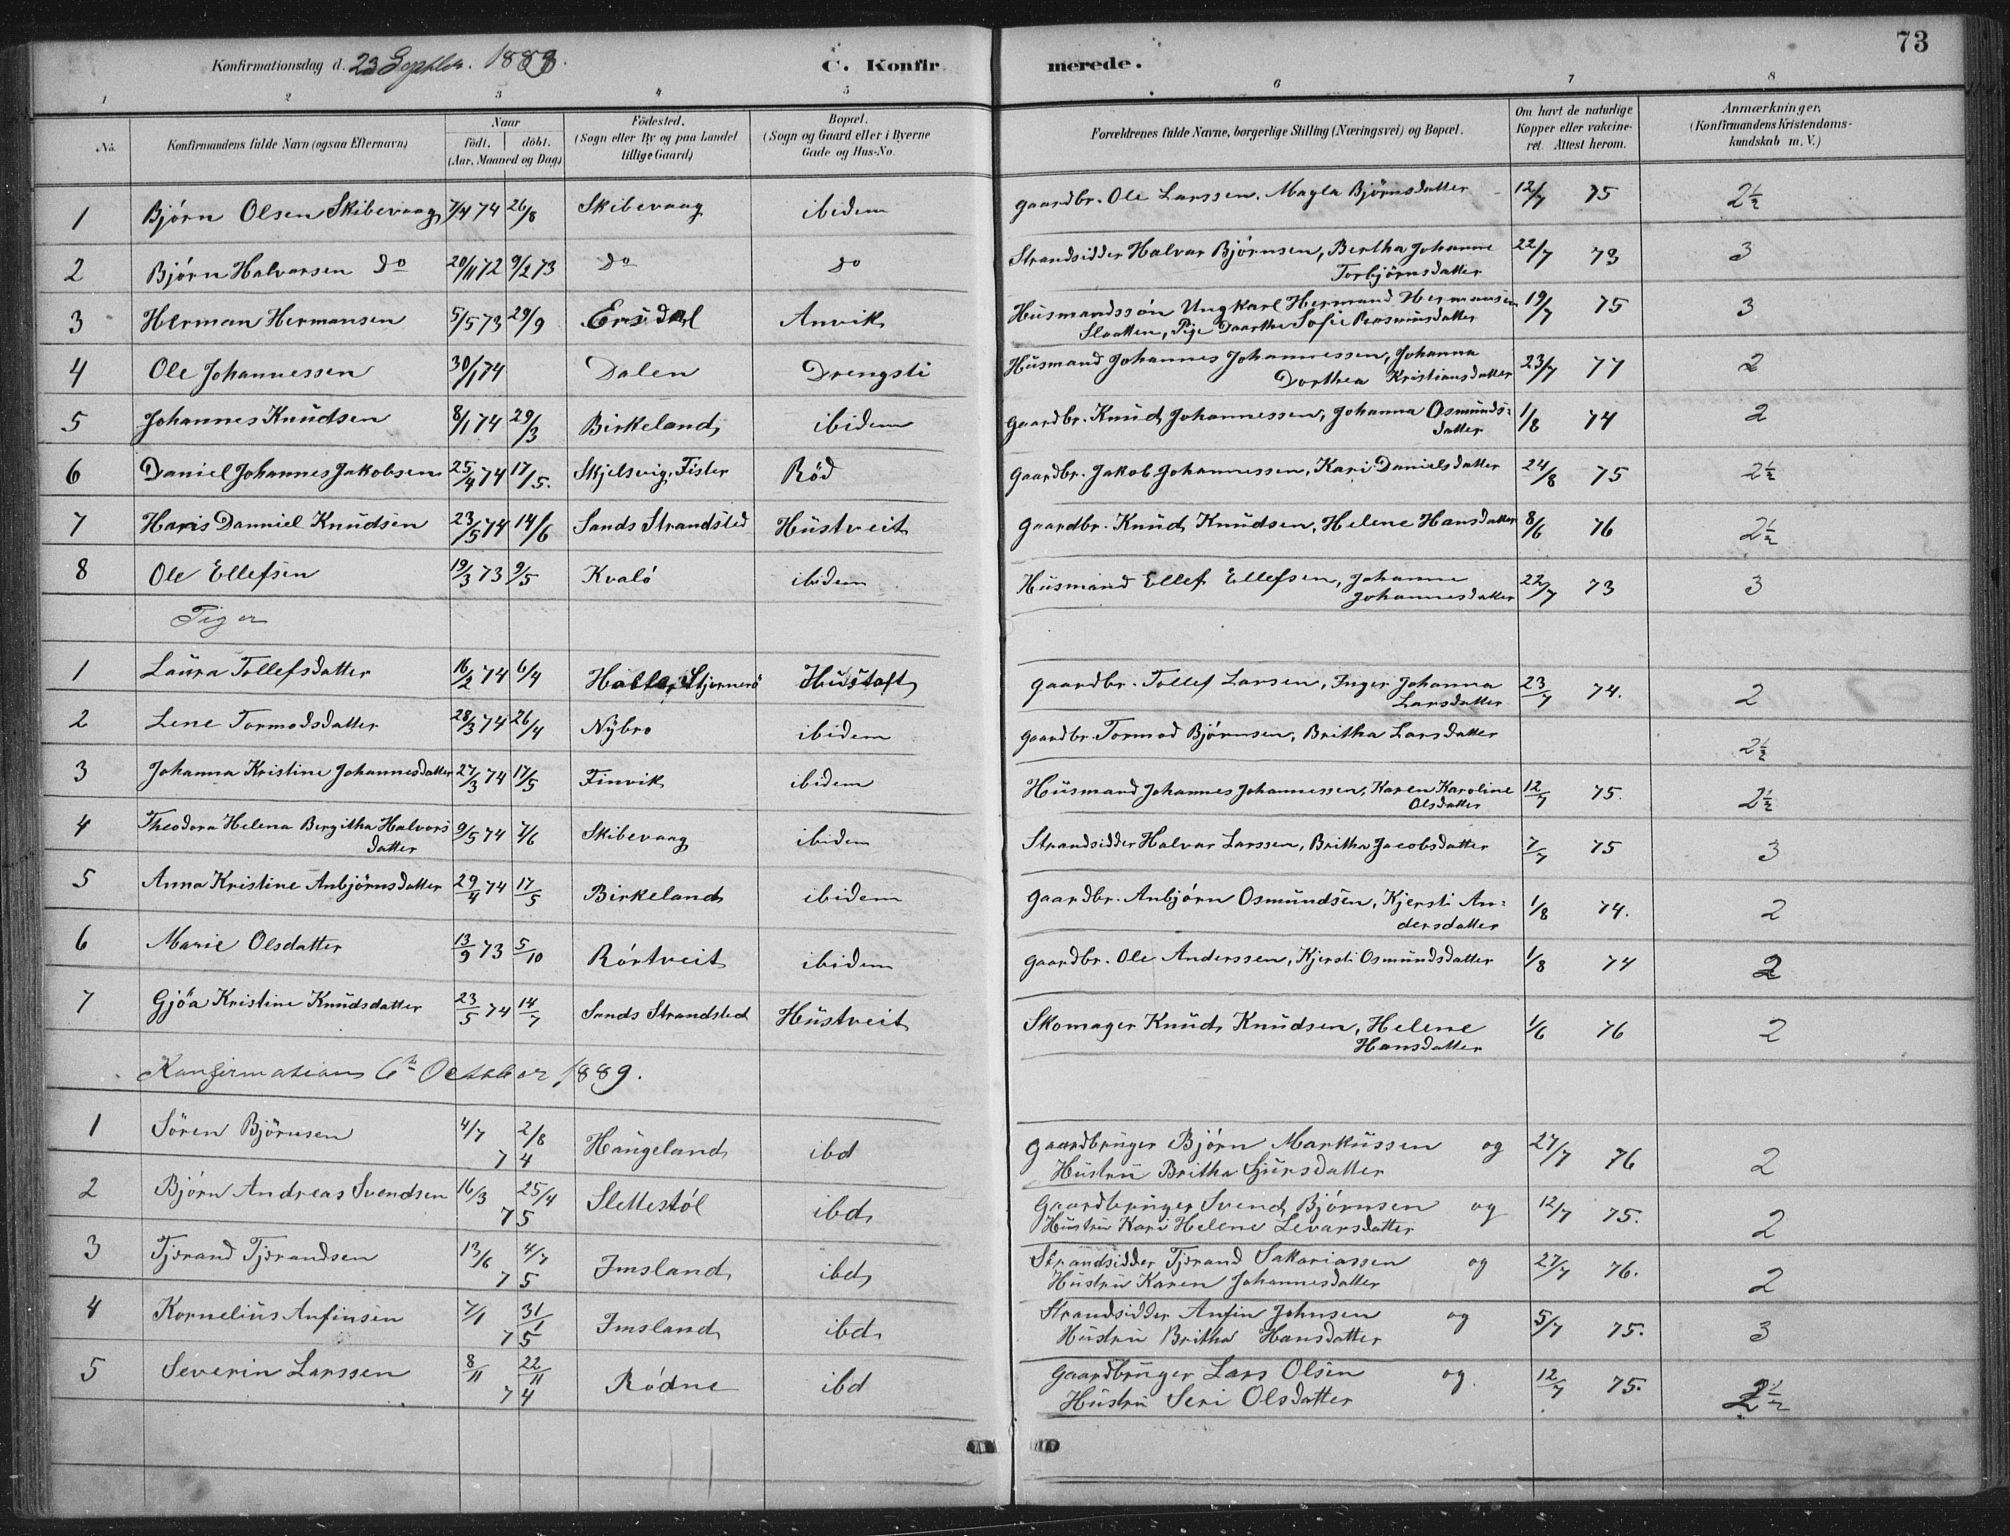 73
Konfirmationsdag d. 23 Septbr. 1888. C. Konfirmerede.
1 2 3 4 5 6 7 8
No. Konfirmandens fulde Navn (ogsaa Efternavn) Naar født. døbt. (Aar, Maaned og Dag) Fødested. (Sogn eller By og paa Landet tillige Gaard) Bopæl. (Sogn og Gaard eller i Byerne Gade og Hus-No. Forældrenes fulde Navne, borgerlige Stilling (Næringsvei) og Bopæl. Om havt de naturlige Kopper eller vakcineret. Attest herom. Anmærkninger. (Konfirmandens Kristendomskundskab m. V.)
1 Bjørn Olsen Skibevaag 7/4 74 26/8 Skibevaag ibidem Gaardbr. Ole Larssen, Magla Bjørnsdatter 12/7 75 2½
2 Bjørn Halvarsen do 20/11 72 9/2 73 do do Strandsidder Halvar Björnsen, Bertha Johanne Torbjørnsdatter 22/7 73 3
3 Herman Hermansen 5/5 73 29/9 Ersdal Anvik Husmandssøn Ungkarl Hermand Hermansen Slaatten, Pige Daarthe Sofie Rasmusdatter 19/7 75 3
4 Ole Johannessen 30/1 74 Dalen Drengsti Husmand Johannes Johannessen, Johanna Dorthea Kristiansdatter 23/7 77 2
5 Johannes Knudsen 8/1 74 29/3 Birkeland ibidem Gaardbr. Knud Johannessen, Johanna Osmundsdatter 1/8 74 2
6 Daniel Johannes Jakobsen 25/4 74 17/5. Skjelsvig, Fister Röd Gaardbr. Jakob Johannessen, Kari Danielsdatter 24/8 75 2½
7 Hans Danniel Knudsen 23/5 74 14/6 Sands Strandsted Hustveit Gaardbr. Knud Knudsen, Helene Hansdatter 8/6 76 2½
8 Ole Ellefsen 19/3 73 9/5 Kvalö ibidem Husmand Ellef Ellefsen, Johanne Johannesdatter 22/7 73 3
Piger
1 Laura Tollefsdatter 16/2 74 6/4 Halle, Stjernerö Hustoft Gaardbr. Tollef Larsen, Inger Johanna Larsdatter 23/7 74. 2
2 Lene Tormodsdatter 28/3 74 26/4 Nybro ibidem Gaardbr. Tormod Bjørnsen, Britha Larsdatter 2½
3 Johanna Kristine Johannesdatter 27/3 74 17/5 Finvik ibidem Husmand Johannes Johannessen, Karen Karoline Olsdatter 12/7 75. 2½
4 Theodora Helena Bergitha Halvorsdatter 9/5 74 7/6 Skibevaag ibidem Strandsidder Halvar Larssen, Britha Jacobsdatter 7/7 75 3
5 Anna Kristine Anbjörnsdatter 29/4 74 17/5 Birkeland ibidem Gaardbr. Anbjørn Osmundsen, Kjersti Andersdatter 1/8 74. 2
6 Marie Olsdatter 13/9 73 5/10 Rörtveit ibidem Gaardbr. Ole Anderssen, Kjersti Osmundsdatter 1/8 74 2
7 Gjöa Kristine Knudsdatter 23/5 74 14/7 Sands Strandsted Hustveit Skomager Knud Knudsen, Helene Hansdatter 1/6 76 2
Konfirmations 6te October 1889.
1 Sören Björnsen 4/7 2/8 74 Haugeland ibd Gaardbruger Bjørn Markussen og Hustru Britha Sjursdatter 27/7 76 2
2 Bjørn Andreas Svendsen 16/3 25/4 75 Slettestøl ibd Gaardbruger Svend Bjørnsen og Hustru Kari Helene Levarsdatter 12/7 75. 2
3 Tjerand Tjerandsen 13/6 4/7 75 Imsland ibd Strandsidder Tjerand Sakariassen og Hustru Karen Johannesdatter 27/7 76. 2
4 Kornelius Anfinsen 7/1 31/1 75 Imsland ibd Strandsidder Anfin Johnsen og Hustru Britha Hansdatter 5/7 75. 3
5 Severin Larssen 8/11 22/11 74 Rødne ibd Gaardbruger Lars Olsen og Hustru Seri Olsdatter 12/7 75. 2½